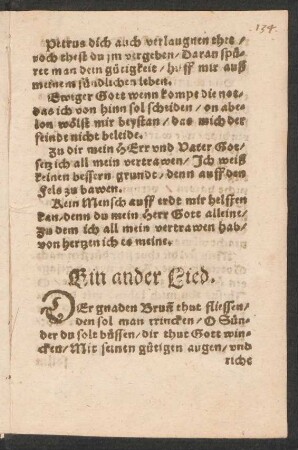 134
Petrus dich auch verlaugnen thet /
noch thest du jm vergeben / Daran spü-
ret man dein gütigkeit / hilff mir auß
meinem sündlichen leben.
Ewiger Gott wenn kompt die not-
das ich von hinn sol scheiden / on abe-
lon wölst mir beystan / das mich der
feindt nicht beleide.
Zu dir mein HErr vnd Vater Got-
setz ich all mein vertrawen / Ich weiß
keinen bessern grunde / denn auff den
Fels zu bawen.
Kein Mensch auff erdt mir helffen
kan / denn du mein Herr Gott alleine /
zu dem ich all mein vertrawen hab /
von hertzen ich es meine.
Ein ander Lied.
DEr gnaden Brunn thut fliessen /
den sol man trincken / O Sün-
der du solt büssen / dir thut Gott win-
cken / Mit seinen gütigen augen / vnd
richt